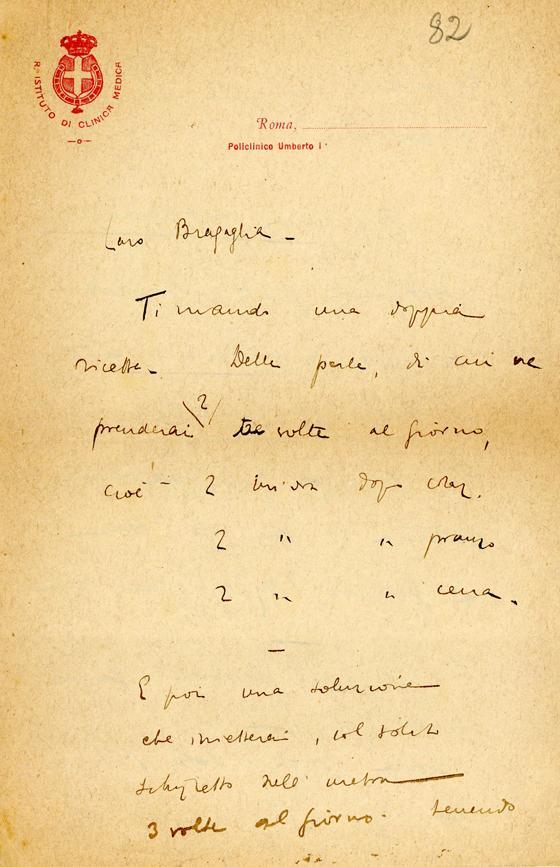 82
R. ISTITUTO DI CLINICA MEDICA
Roma,
Policlinico Umberto I
Caro Bragaglia -
Ti mando una doppia
ricetta. Delle perle, di cui ne
prenderai \2/ tre volte al giorno,
cioè - 2 un'ora dopo colaz.
2 " " pranzo
2 " " cena.
E poi una soluzione
che inietterai, col solito
schizzetto nell' uretra
3 volte al giorno. tenendo